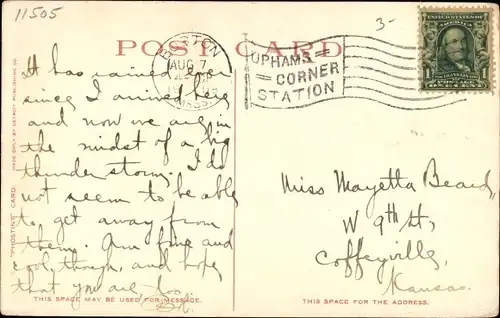 11505
3-
POST CARD
BOSTON
AUG 7
MASS.
UPHAMS
CORNER
STATION
UNITED STATES OF AMERICA
FRANKLIN
1 ONE CENT 1
"PHOSTINT" CARD. MADE ONLY BY DETROIT PUBLISHING CO.
It has rained ever
since I arrived here
and now we are in
the midst of a big
thunder storm. I do
not seem to be able
to get away from
them. Am fine and
cool, though, and hope
that you are, too.
Miss Mayetta Beard,
W 9th St,
Coffeyville,
Kansas.
THIS SPACE MAY BE USED FOR MESSAGE.
THIS SPACE IS FOR THE ADDRESS.